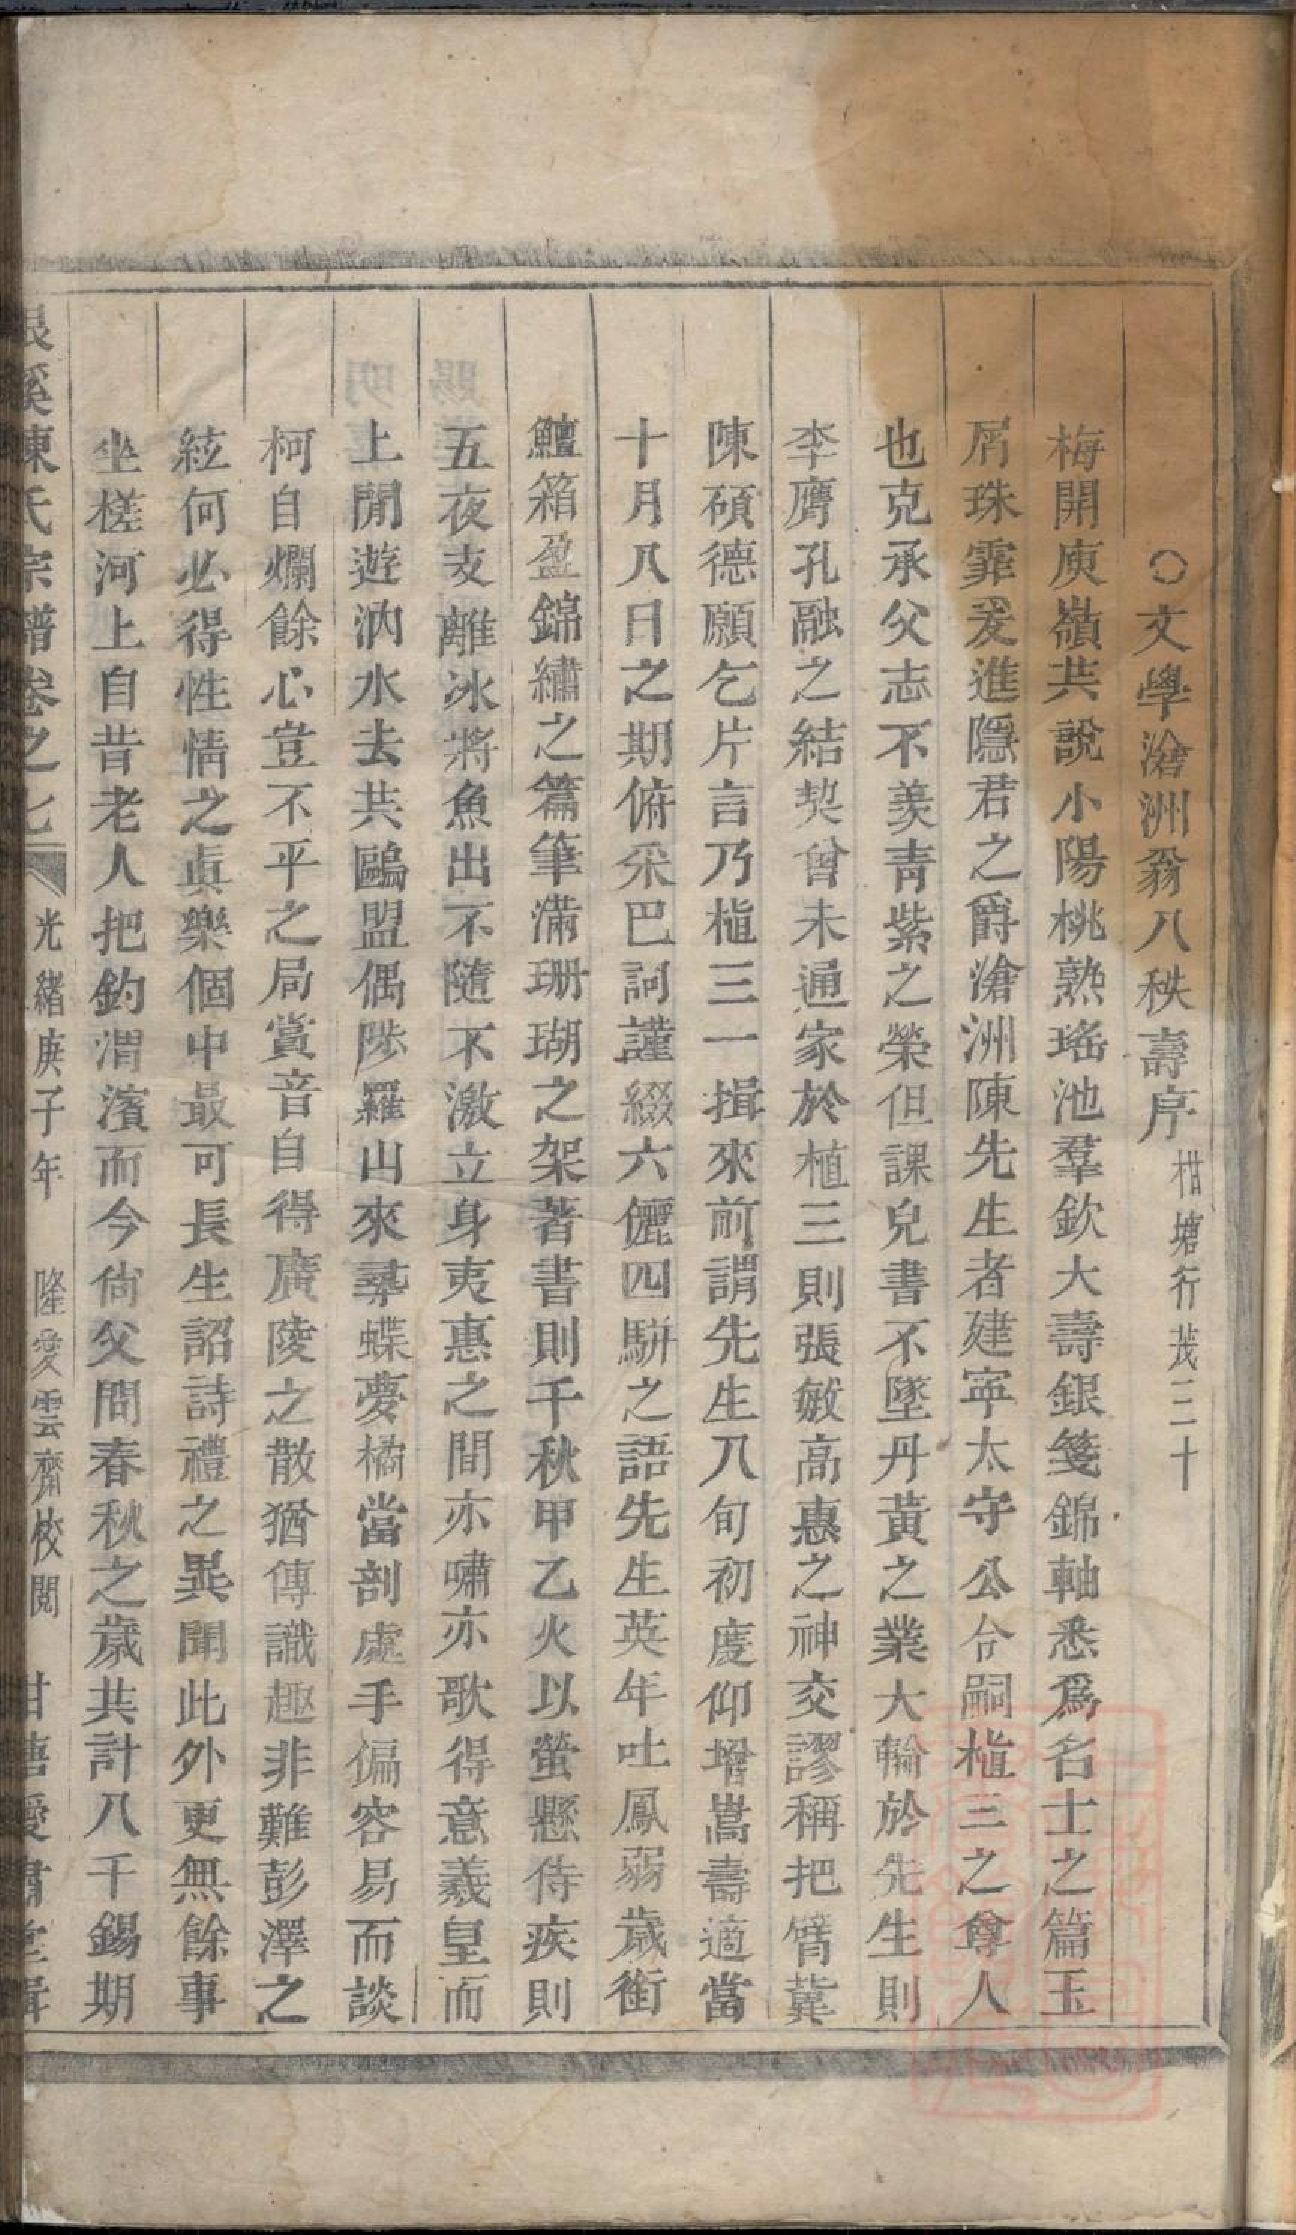 ○文學滄洲翁八秩壽序 柑塘行茂三十
梅開庾嶺共說小陽桃熟瑤池羣欽大壽銀箋錦軸悉爲名士之篇玉
屑珠霏爰進隱君之爵滄洲陳先生者建寜太守公台嗣植三之尊人
也克承父志不羨靑紫之榮但課兒書不墜丹黃之業大輪於先生則
李膺孔融之結契曾未通家於植三則張敏高惠之神交謬稱把臂冀
陳碩德願乞片言乃植三一揖來前謂先生八旬初度仰增嵩壽適當
十月八日之期俯采巴詞謹綴六儷四駢之語先生英年吐鳳弱歲銜
鱣箱盈錦繡之篇筆滿珊瑚之架著書則千秋甲乙火以螢懸侍疾則
五夜支離冰將魚出不隨不激立身夷惠之間亦嘯亦歌得意羲皇而
上閒遊汭水去共鷗盟偶陟羅山來尋蝶夢橘當剖處手偏容易而談
柯自爛餘心豈不平之局賞音自得廣陵之散猶傳識趣非難彭澤之
絃何必得性情之眞樂個中最可長生詔詩禮之異聞此外更無餘事
坐槎河上自昔老人把釣渭濱而今尙父問春秋之歲共計八千錫期
陳氏宗譜卷之七 光緒庚子年 隆愛雲齋校閱